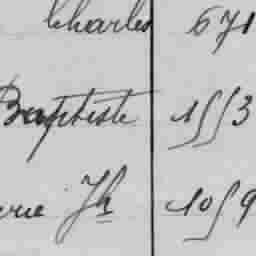 Charles 671
Baptiste 1553
rie Jh 1059